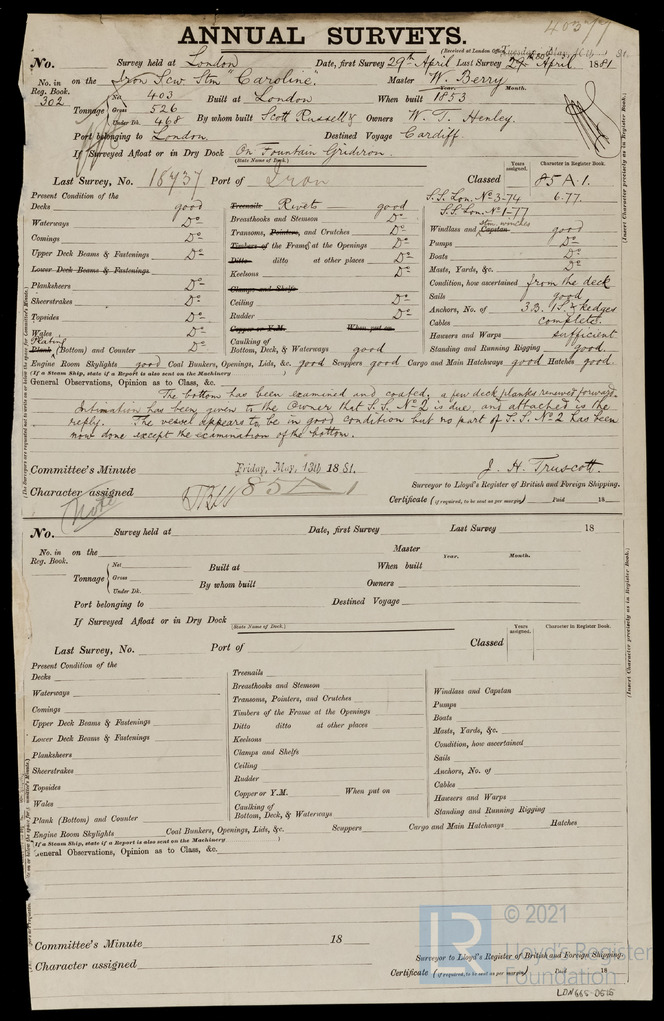 40377
ANNUAL SURVEYS.
(Received at London Office Tuesday, May 10th 81.
No. Survey held at London Date, first Survey 29th April Last Survey 30th April 1881
No. in Reg. Book. 302 on the Iron Scw Stm "Caroline". Master W. Berry
Tonnage Net 403 Gross 526 Under Dk. 468 Built at London When built Year. 1853 Month.
By whom built Scott Russell & Owners W. T. Henley.
Port belonging to London Destined Voyage Cardiff.
If Surveyed Afloat or in Dry Dock On Fountain Gridiron.
(State Name of Dock.)
Last Survey, No. 18737 Port of Iron Classed Years assigned. Character in Register Book. 85 A.1.
6.77.
S.S. Lon. No 3-74
S.S. Lon. No 1-77
(Insert Character precisely as in Register Book.)
Present Condition of the
Decks good
Waterways Do
Comings Do
Upper Deck Beams & Fastenings Do
Lower Deck Beams & Fastenings
Planksheers Do
Sheerstrakes Do
Topsides Do
Wales Do
Plating
Plank (Bottom) and Counter Do
Treenails Rivets good
Breasthooks and Stemson Do
Transoms, Pointers, and Crutches Do
Timbers of the Frames at the Openings Do
Ditto ditto at other places Do
Keelsons Do
Clamps and Shelfs
Ceiling Do
Rudder Do
Copper or Y.M. When put on
Caulking of
Bottom, Deck, & Waterways good
stm. winches
Windlass and Capstan good
Pumps Do
Boats Do
Masts, Yards, &c. Do
Condition, how ascertained from the deck
Sails good
Anchors, No. of 3 B. 1 S. & kedges
Cables complete.
Hawsers and Warps sufficient
Standing and Running Rigging good.
Engine Room Skylights good Coal Bunkers, Openings, Lids, &c. good Scuppers good Cargo and Main Hatchways good Hatches good.
(If a Steam Ship, state if a Report is also sent on the Machinery )
General Observations, Opinion as to Class, &c.
The bottom has been examined and coated, a few deck planks renewed forward.
Intimation has been given to the Owner that S.S. No 2 is due, and attached is the
reply. The vessel appears to be in good condition but no part of S.S. No 2 has been
now done except the examination of the bottom.
Committee's Minute Friday, May, 13th 1881. J. H. Truscott.
Surveyor to Lloyd's Register of British and Foreign Shipping.
Character assigned 85 A 1
Certificate (if required, to be sent as per margin) Paid 18
Note
No. Survey held at Date, first Survey Last Survey 18
No. in Reg. Book. on the Master
Tonnage Net Gross Under Dk. Built at When built Year. Month.
By whom built Owners
Port belonging to Destined Voyage
If Surveyed Afloat or in Dry Dock
(State Name of Dock.)
Last Survey, No. Port of Classed Years assigned. Character in Register Book.
(Insert Character precisely as in Register Book.)
Present Condition of the
Decks
Waterways
Comings
Upper Deck Beams & Fastenings
Lower Deck Beams & Fastenings
Planksheers
Sheerstrakes
Topsides
Wales
Plank (Bottom) and Counter
Treenails
Breasthooks and Stemson
Transoms, Pointers, and Crutches
Timbers of the Frame at the Openings
Ditto ditto at other places
Keelsons
Clamps and Shelfs
Ceiling
Rudder
Copper or Y.M. When put on
Caulking of
Bottom, Deck, & Waterways
Windlass and Capstan
Pumps
Boats
Masts, Yards, &c.
Condition, how ascertained
Sails
Anchors, No. of
Cables
Hawsers and Warps
Standing and Running Rigging
Engine Room Skylights Coal Bunkers, Openings, Lids, &c. Scuppers Cargo and Main Hatchways Hatches
(If a Steam Ship, state if a Report is also sent on the Machinery )
General Observations, Opinion as to Class, &c.
Committee's Minute 18
Surveyor to Lloyd's Register of British and Foreign Shipping.
Character assigned
Certificate (if required, to be sent as per margin) Paid 18
LR © 2021
Lloyd's Register
Foundation
LDN665-0515